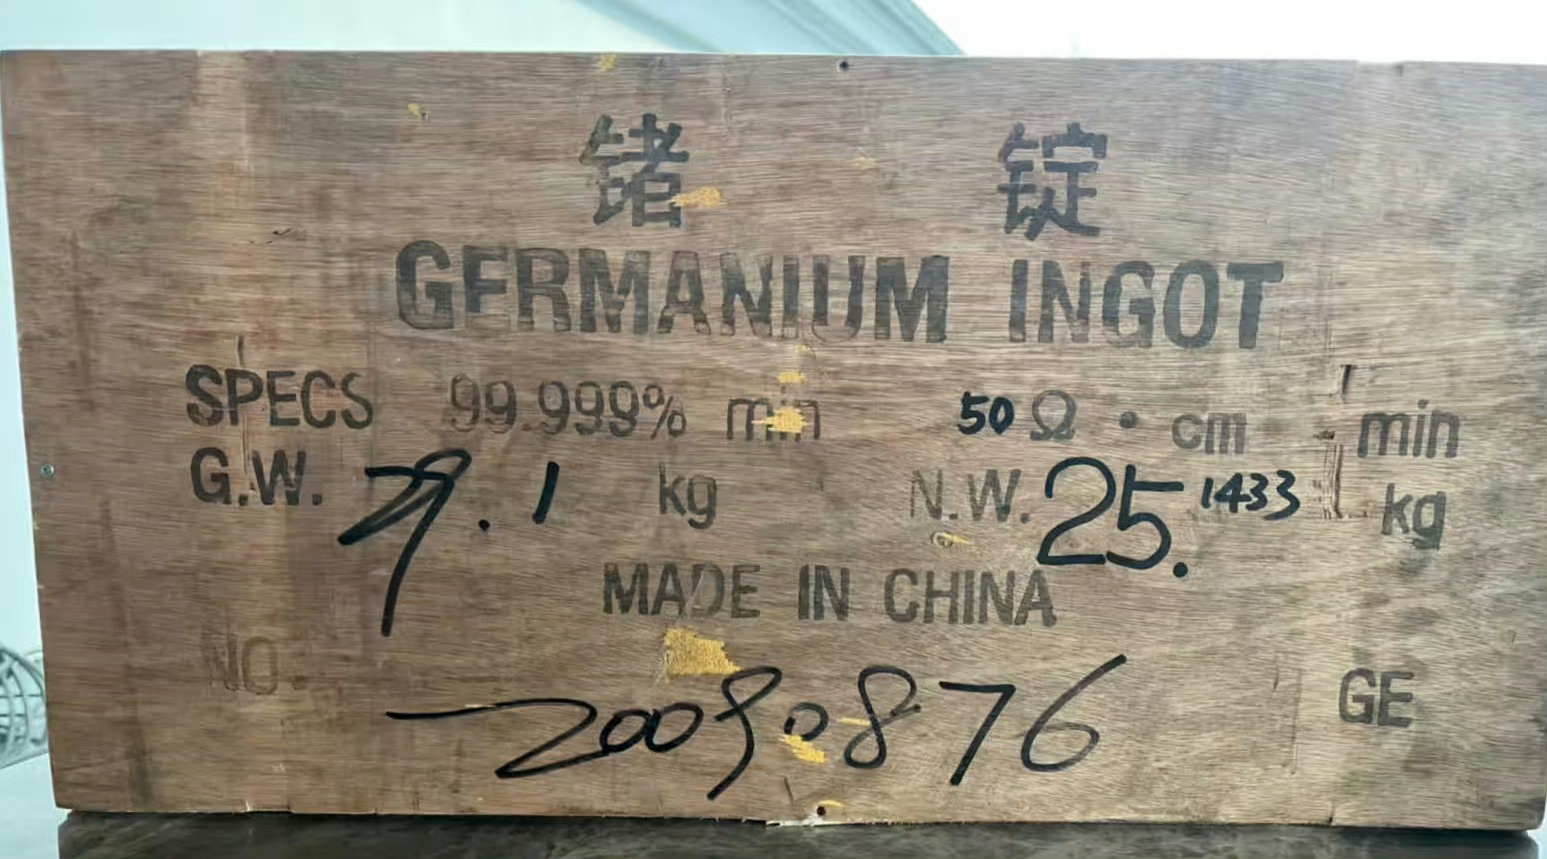 锗 锭
GERMANIUM INGOT
SPECS 99.999% min 50 Ω • cm min
G.W. 29.1 kg N.W. 25.1433 kg
MADE IN CHINA
NO. GE
20090876